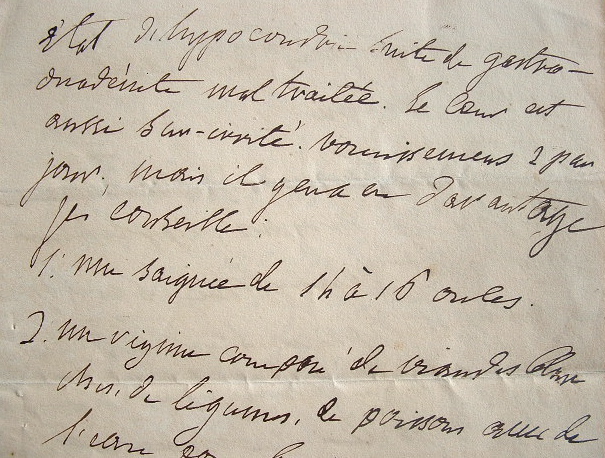 état d'hypocondrie suite de gastro-
duodénite mal traitée. Le Cœur est
aussi sur-irrité. vomissemens 2 par
jour, mais il y en a eu davantage
je conseille:
1. une saignée de 14 à 16 onces.
2. un régime composé de viandes blan
ches, de légumes, de poissons avec de
l'eau